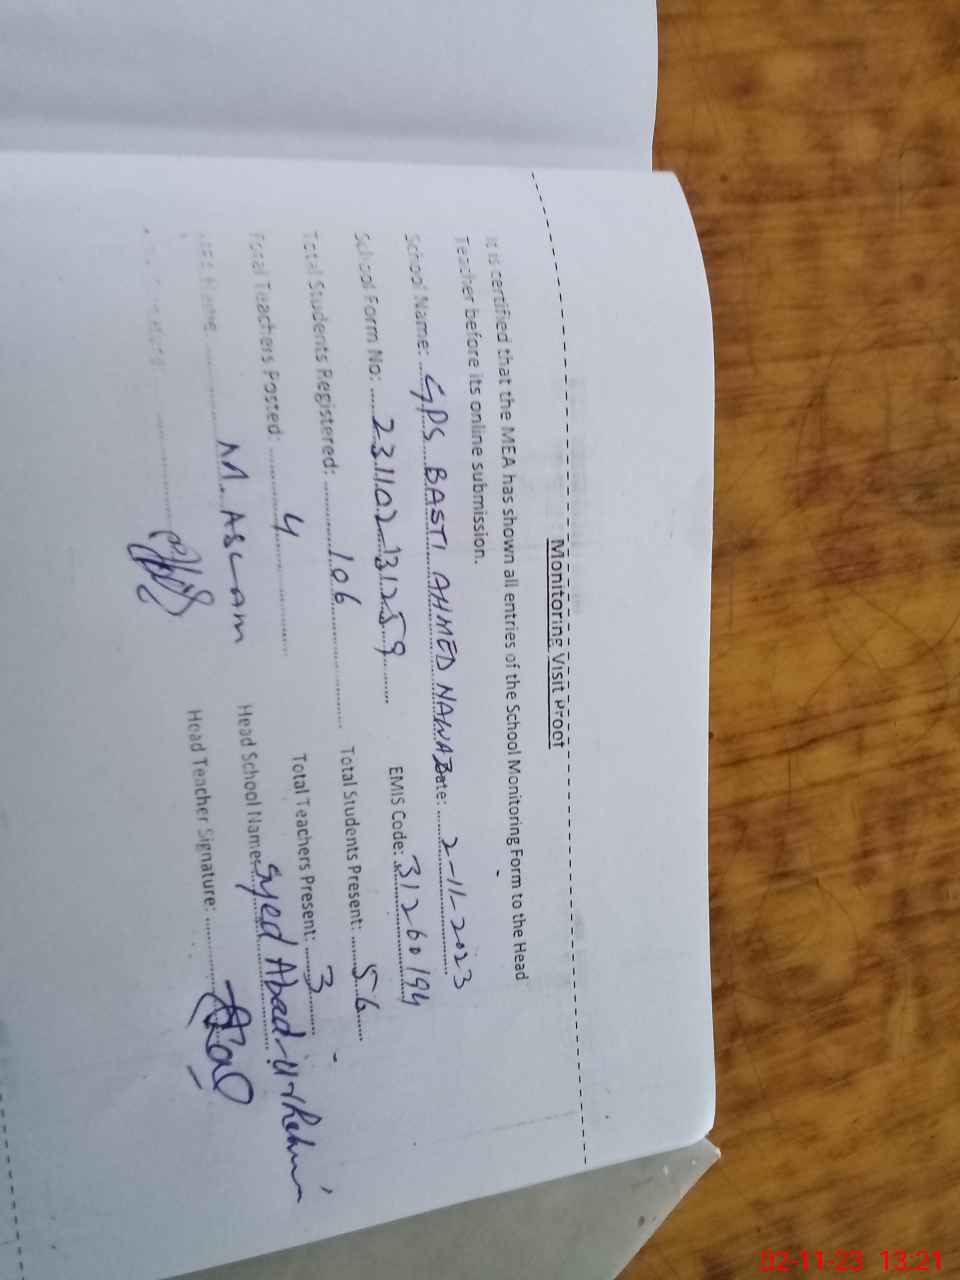 Monitoring Visit Proof
It is certified that the MEA has shown all entries of the School Monitoring Form to the Head
Teacher before its online submission.
School Name: GPS BASTI AHMED NAWAZ Date: 2-11-2023
School Form No: 231102131259 EMIS Code: 31260194
Total Students Registered: 106 Total Students Present: 56
Total Teachers Posted: 4 Total Teachers Present: 3
MEA Name M. ASLAM Head School Name: Syed Abad-ur-Rehman
Head Teacher Signature:
02-11-23 13:21